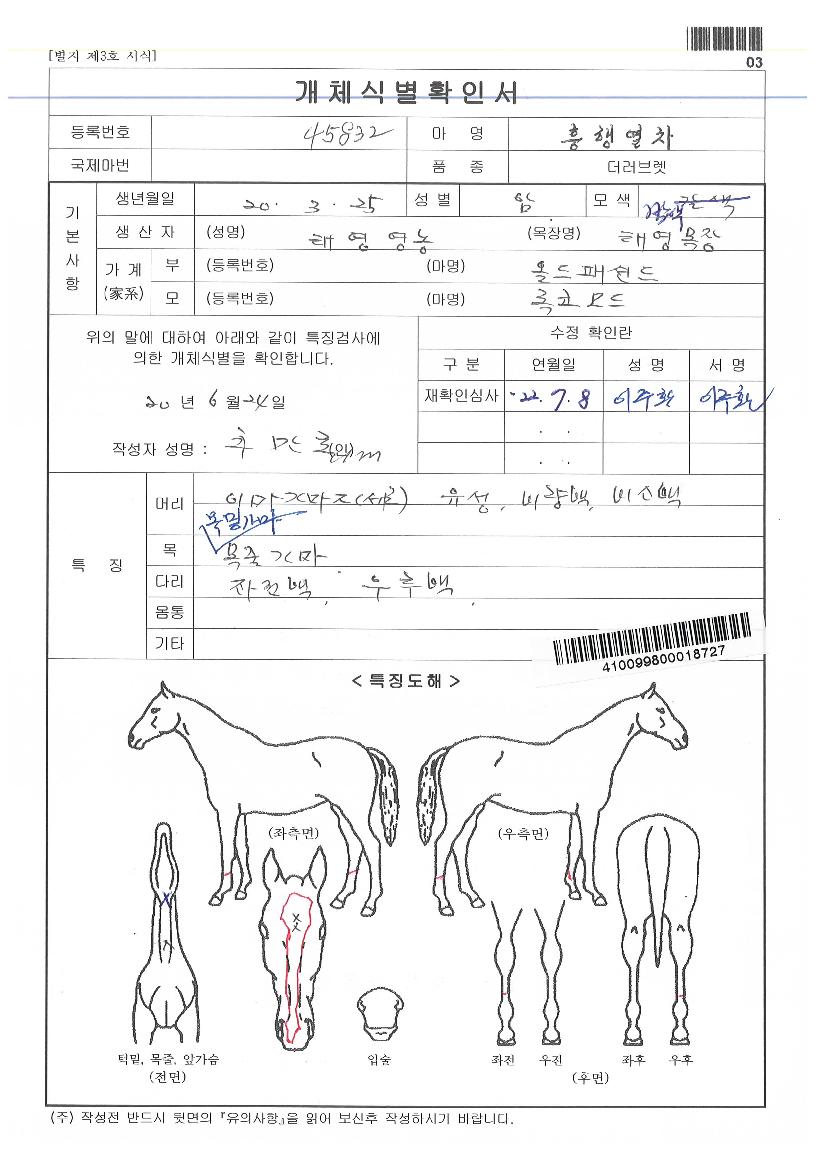 [별지 제3호 서식]
03
개체식별확인서
등록번호 45832 마 명 흥행열차
국제마번 품 종 더러브렛
기본사항
생년월일 20. 3. 25 성 별 암 모 색
생 산 자 (성명) 태영영농 (목장명) 태영목장
가 계 (家系) 부 (등록번호) (마명) 올드패션드
모 (등록번호) (마명) 록큰모드
위의 말에 대하여 아래와 같이 특징검사에
의한 개체식별을 확인합니다.
20 년 6 월 24 일
작성자 성명 : (인)
수정 확인란
구 분 연월일 성 명 서 명
재확인심사 '22. 7. 8 이주환 이주환
특 징
머리 이마가마 유성, 비량백, 비소백
목멱가마
목 목줄가마
다리 좌전백, 우후백
몸통
기타
410099800018727
< 특징도해 >
(좌측면) (우측면)
턱밑, 목줄, 앞가슴
(전면)
입술
좌전 우전 좌후 우후
(후면)
(주) 작성전 반드시 뒷면의 『유의사항』을 읽어 보신후 작성하시기 바랍니다.